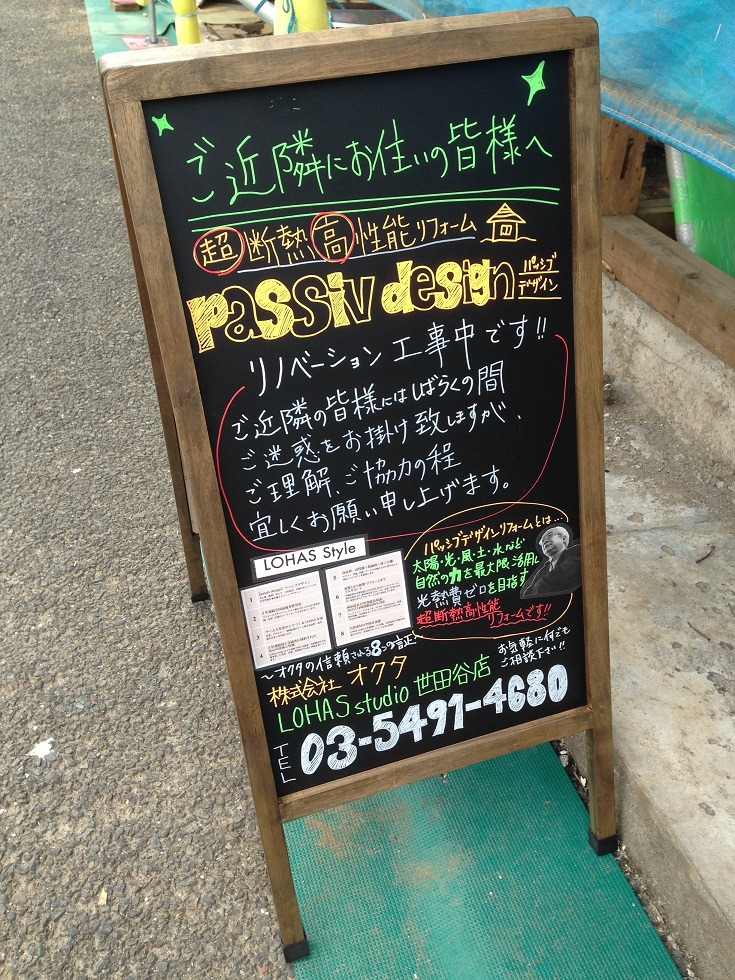 ご近隣にお住いの皆様へ
超断熱高性能リフォーム
passiv design パッシブデザイン
リノベーション工事中です!!
ご近隣の皆様にはしばらくの間
ご迷惑をお掛け致しますが、
ご理解、ご協力の程
宜しくお願い申し上げます。
LOHAS Style
1
2
3
4
5
6
7
8
〜オクタの信頼される8つの証〜
パッシブデザインリフォームとは…
太陽・光・風・土・水など
自然の力を最大限活用し
光熱費ゼロを目指す
超断熱高性能
リフォームです!!
株式会社 オクタ
LOHAS studio 世田谷店
お気軽に何でも
ご相談下さい!!
TEL 03-5491-4680